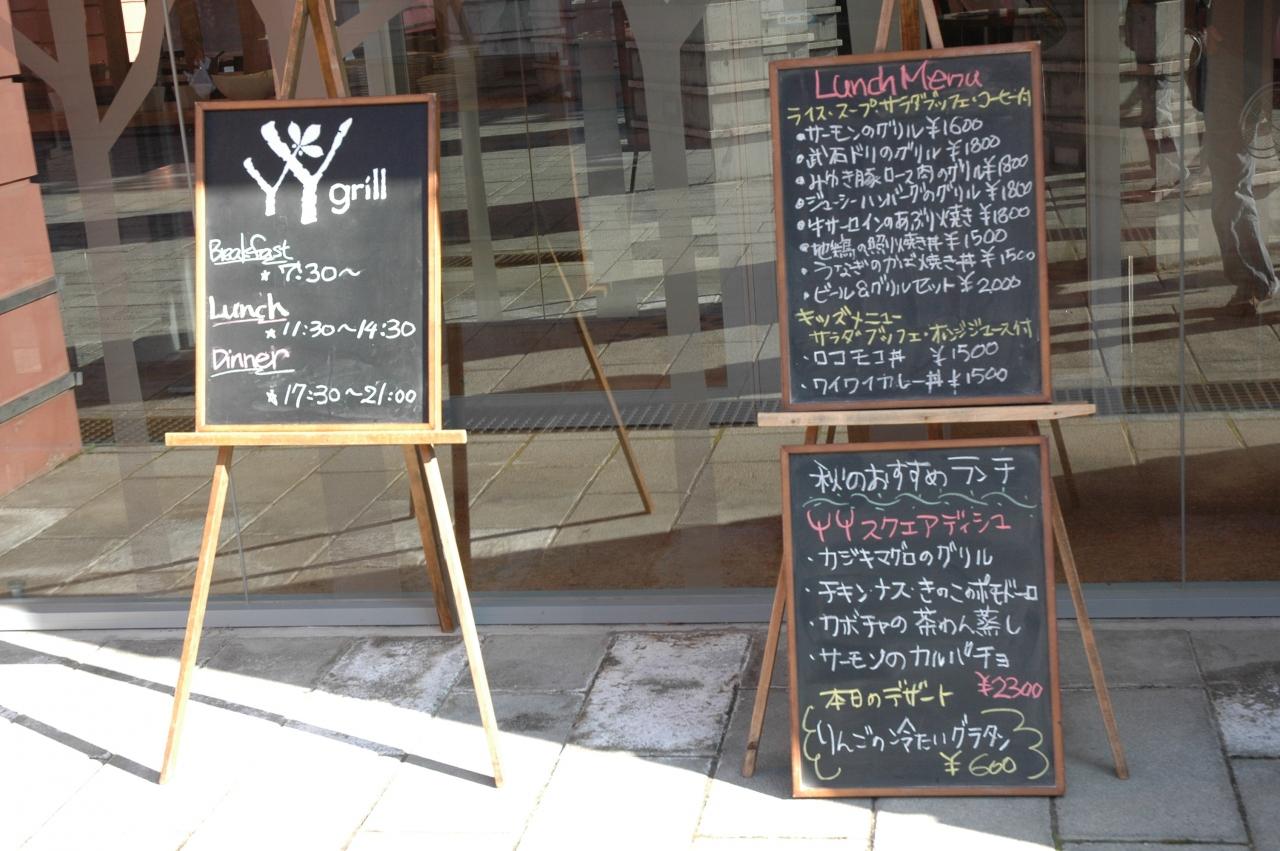 YY grill
Breakfast
★7:30〜
Lunch
★11:30〜14:30
Dinner
★17:30〜21:00
Lunch Menu
ライス・スープ・サラダブッフェ・コーヒー付
・サーモンのグリル ¥1600
・武石ドリのグリル ¥1800
・みゆき豚ロース肉のグリル ¥1800
・ジューシーハンバーグのグリル ¥1800
・牛サーロインのあぶり焼き ¥1800
・地鶏の照り焼き丼 ¥1500
・うなぎのかば焼き丼 ¥1500
・ビール&グリルセット ¥2,000
キッズメニュー
サラダブッフェ・オレンジジュース付
・ロコモコ丼 ¥1500
・ワイワイカレー丼 ¥1500
秋のおすすめランチ
YYスクエアディシュ
・カジキマグロのグリル
・チキン・ナス・きのこのポモドーロ
・カボチャの茶わん蒸し
・サーモンのカルパチョ
¥2300
本日のデザート
りんごの冷たいグラタン
¥600